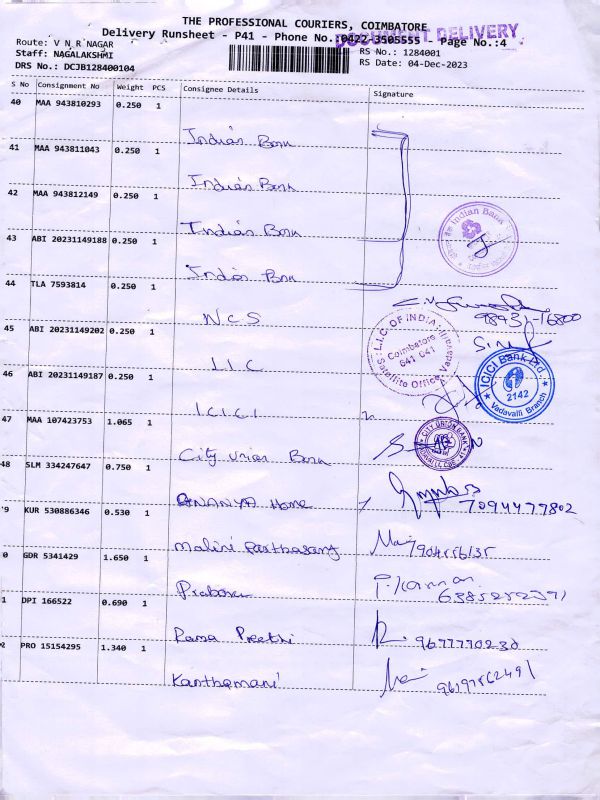 THE PROFESSIONAL COURIERS, COIMBATORE
Delivery Runsheet - P41 - Phone No.:0422-3505555 Page No.:4
DOCUMENT DELIVERY
Route: V N R NAGAR
RS No.: 1284001
Staff: NAGALAKSHMI
RS Date: 04-Dec-2023
DRS No.: DCJB128400104
S No Consignment No Weight PCS Consignee Details Signature
40 MAA 943810293 0.250 1
Indian Bank
41 MAA 943811043 0.250 1
Indian Bank
42 MAA 943812149 0.250 1
Indian Bank
Indian Bank
43 ABI 20231149188 0.250 1
Indian Bank
44 TLA 7593814 0.250 1
N C S 98431-16800
45 ABI 20231149202 0.250 1
L.I.C. OF INDIA
Coimbatore
641 041
Satellite Office
L I C
46 ABI 20231149187 0.250 1
ICICI Bank Ltd.
2142
Vadavalli Branch
I C I C I
47 MAA 107423753 1.065 1
CITY UNION BANK
City Union Bank
48 SLM 334247647 0.750 1
ANANYA Home 7094477802
9 KUR 530886346 0.530 1
Malini Parthasarathy
0 GDR 5341429 1.650 1
Prabakar
1 DPI 166522 0.690 1
Rama Preethi 9677770230
2 PRO 15154295 1.340 1
Kanthamani